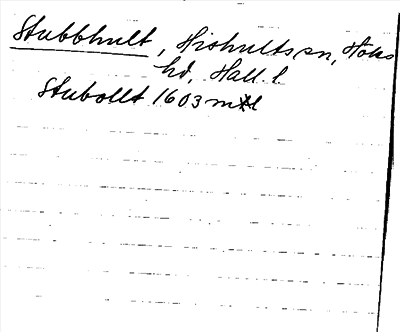 Stubbhult, Hishults sn, Höks
hd, Hall. l.
Stubollt 1603 mtl